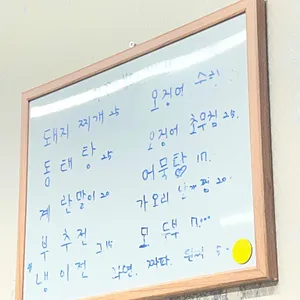 돼지 찌개 25
동태탕 25
계란말이 20
부추전
냉이전 기15
오징어
오징어 초무침 25.
어묵탕♡ 17.
가오리 찜 20.
모두부 17.000
라면. 짜파.